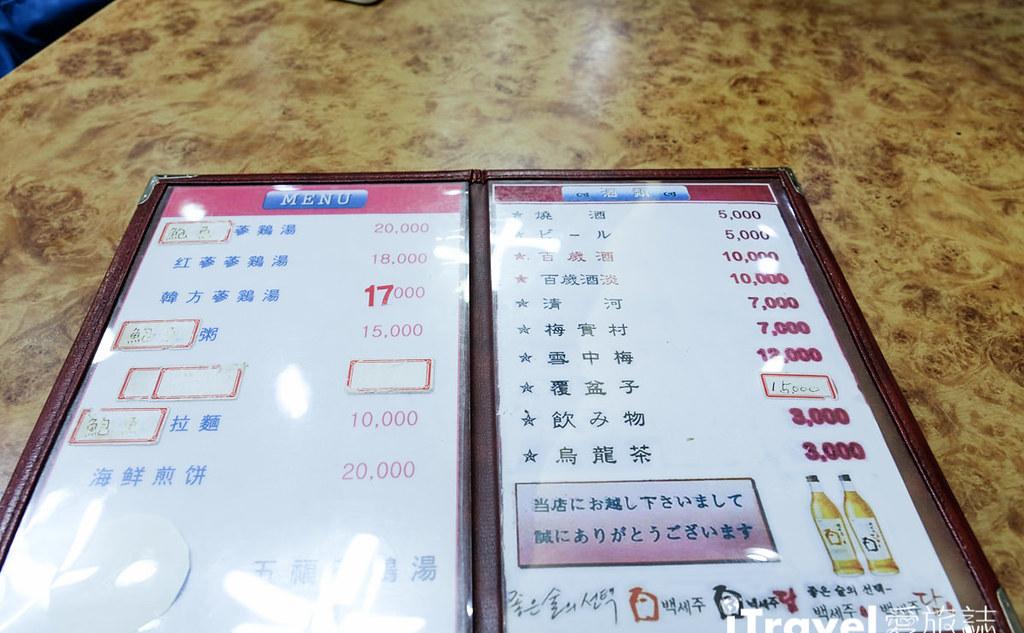 MENU
鮑魚 蔘鶏湯 20,000
红蔘蔘鶏湯 18,000
韓方蔘鶏湯 17000
鮑魚 粥 15,000
鮑魚 拉麵 10,000
海鲜煎饼 20,000
五福 鶏湯
酒類
☆ 燒酒 5,000
☆ ビール 5,000
☆ 百歲酒 10,000
☆ 百歲酒淡 10,000
☆ 清河 7,000
☆ 梅實村 7,000
☆ 雪中梅 12,000
☆ 覆盆子 15,000
☆ 飲み物 3,000
☆ 烏龍茶 3,000
当店にお越し下さいまして
誠にありがとうございます
좋은술의 선택 백세주 좋은 술의 선택- 백세주
iTravel 愛旅誌